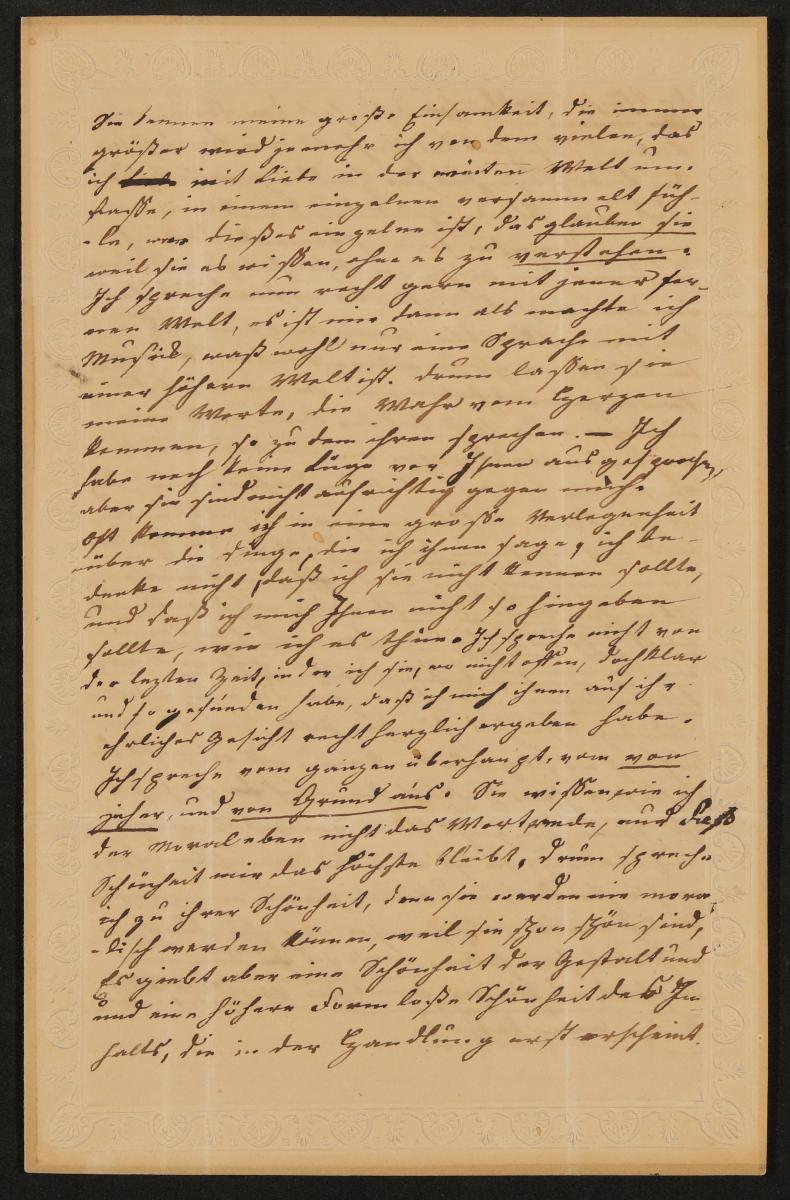 Sie kennen meine große Einsamkeit, die immer
größer wird jemehr ich von dem vielen, das
ich mit Liebe in der weiten Welt um-
fasse, in einem einzelnen versammelt füh-
-le, wer dießes einzelne ist, das glauben sie
weil sie es wissen, ohne es zu verstehen.
Ich spreche nun recht gern mit jener fer-
nen Welt, es ist mir dann als machte ich
Musick, waß wohl nur eine Sprache mit
einer höhern Welt ist. Drum lassen sie
meine Worte, die Wahr vom Herzen
kommen, so zu dem ihren sprechen. — Ich
habe noch keine Lüge vor Ihnen ausgesprochen,
aber sie sind nicht aufrichtig gegen mich.
Oft komme ich in eine grosse Verlegenheit
über die Dinge, die ich ihnen sage, ich be-
denke nicht, daß ich sie nicht kennen sollte,
und daß ich mich Ihnen nicht so hingeben
sollte, wie ich es thue. Ich spreche nicht von
der lezten Zeit, in der ich sie, wo nicht offen, doch klar
und so gefunden habe, daß ich mich ihnen auf ihr
ehrliches Gesicht recht herzlich ergeben habe.
Ich spreche vom ganzen überhaupt, vom von
jeher, und von Grund aus. Sie wissen, wie ich
der Moral eben nicht das Wort rede, und daß
Schönheit mir das Höchste bleibt, drum spreche
ich zu ihrer Schönheit, denn sie werden nie mora
-lisch werden können, weil sie schon schön sind,
Es giebt aber eine Schönheit der Gestalt und
und eine höhere Formloße Schönheit des In-
halts, die in der Handlung erst erscheint.